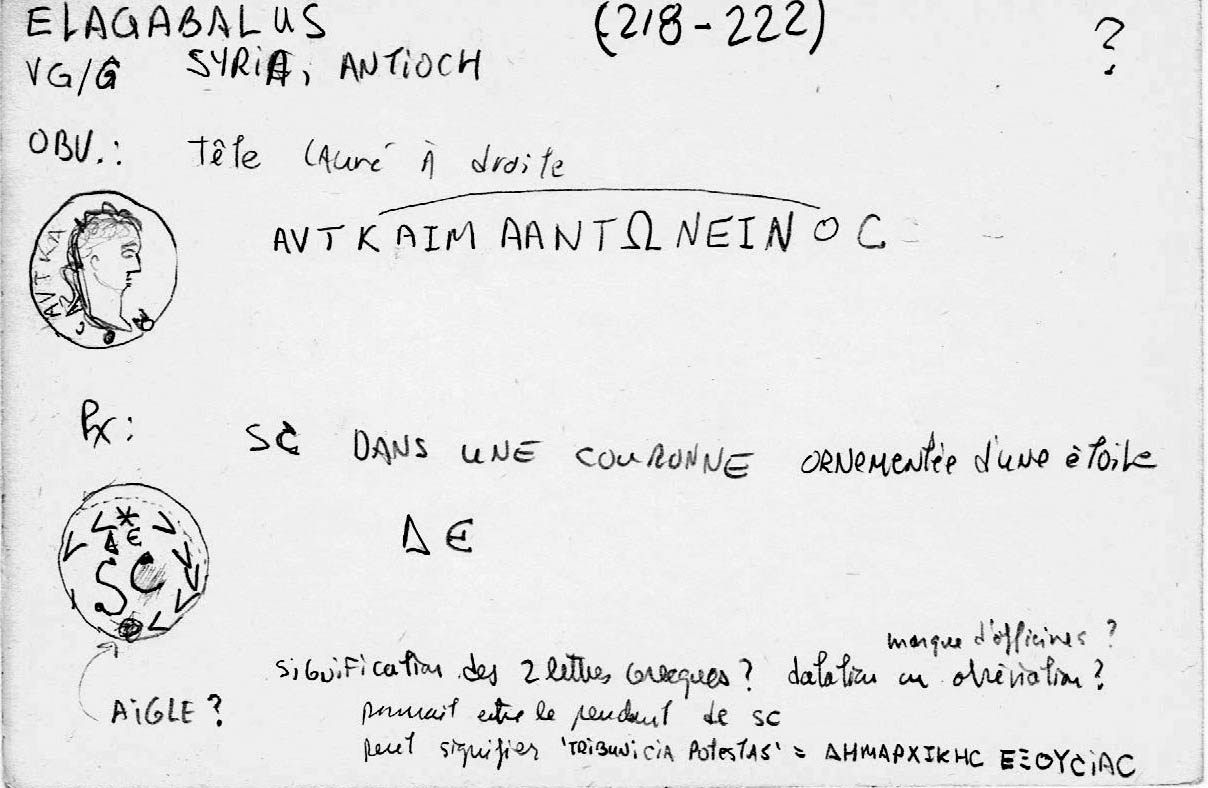 ELAGABALUS (218-222) ?
VG/G SYRIA, ANTIOCH
OBV.: tête lauré à droite
AVTKAIM AANTΩNEINOC
AVTKA
C O
Rx: SC DANS UNE COURONNE ORNEMENTée d'une étoile
* Δ Є
SC
Δ Є
marque d'officines ?
Signification des 2 lettres Grecques ? datation ou abréviation ?
AIGLE ? pourrait être le pendant de SC
peut signifier 'TRIBUNICIA POTESTAS' = ΔHMAPXIKHC EΞOYCiAC